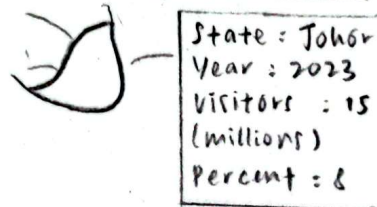 State : Johor
Year : 2023
Visitors : 15
(millions)
Percent : 8